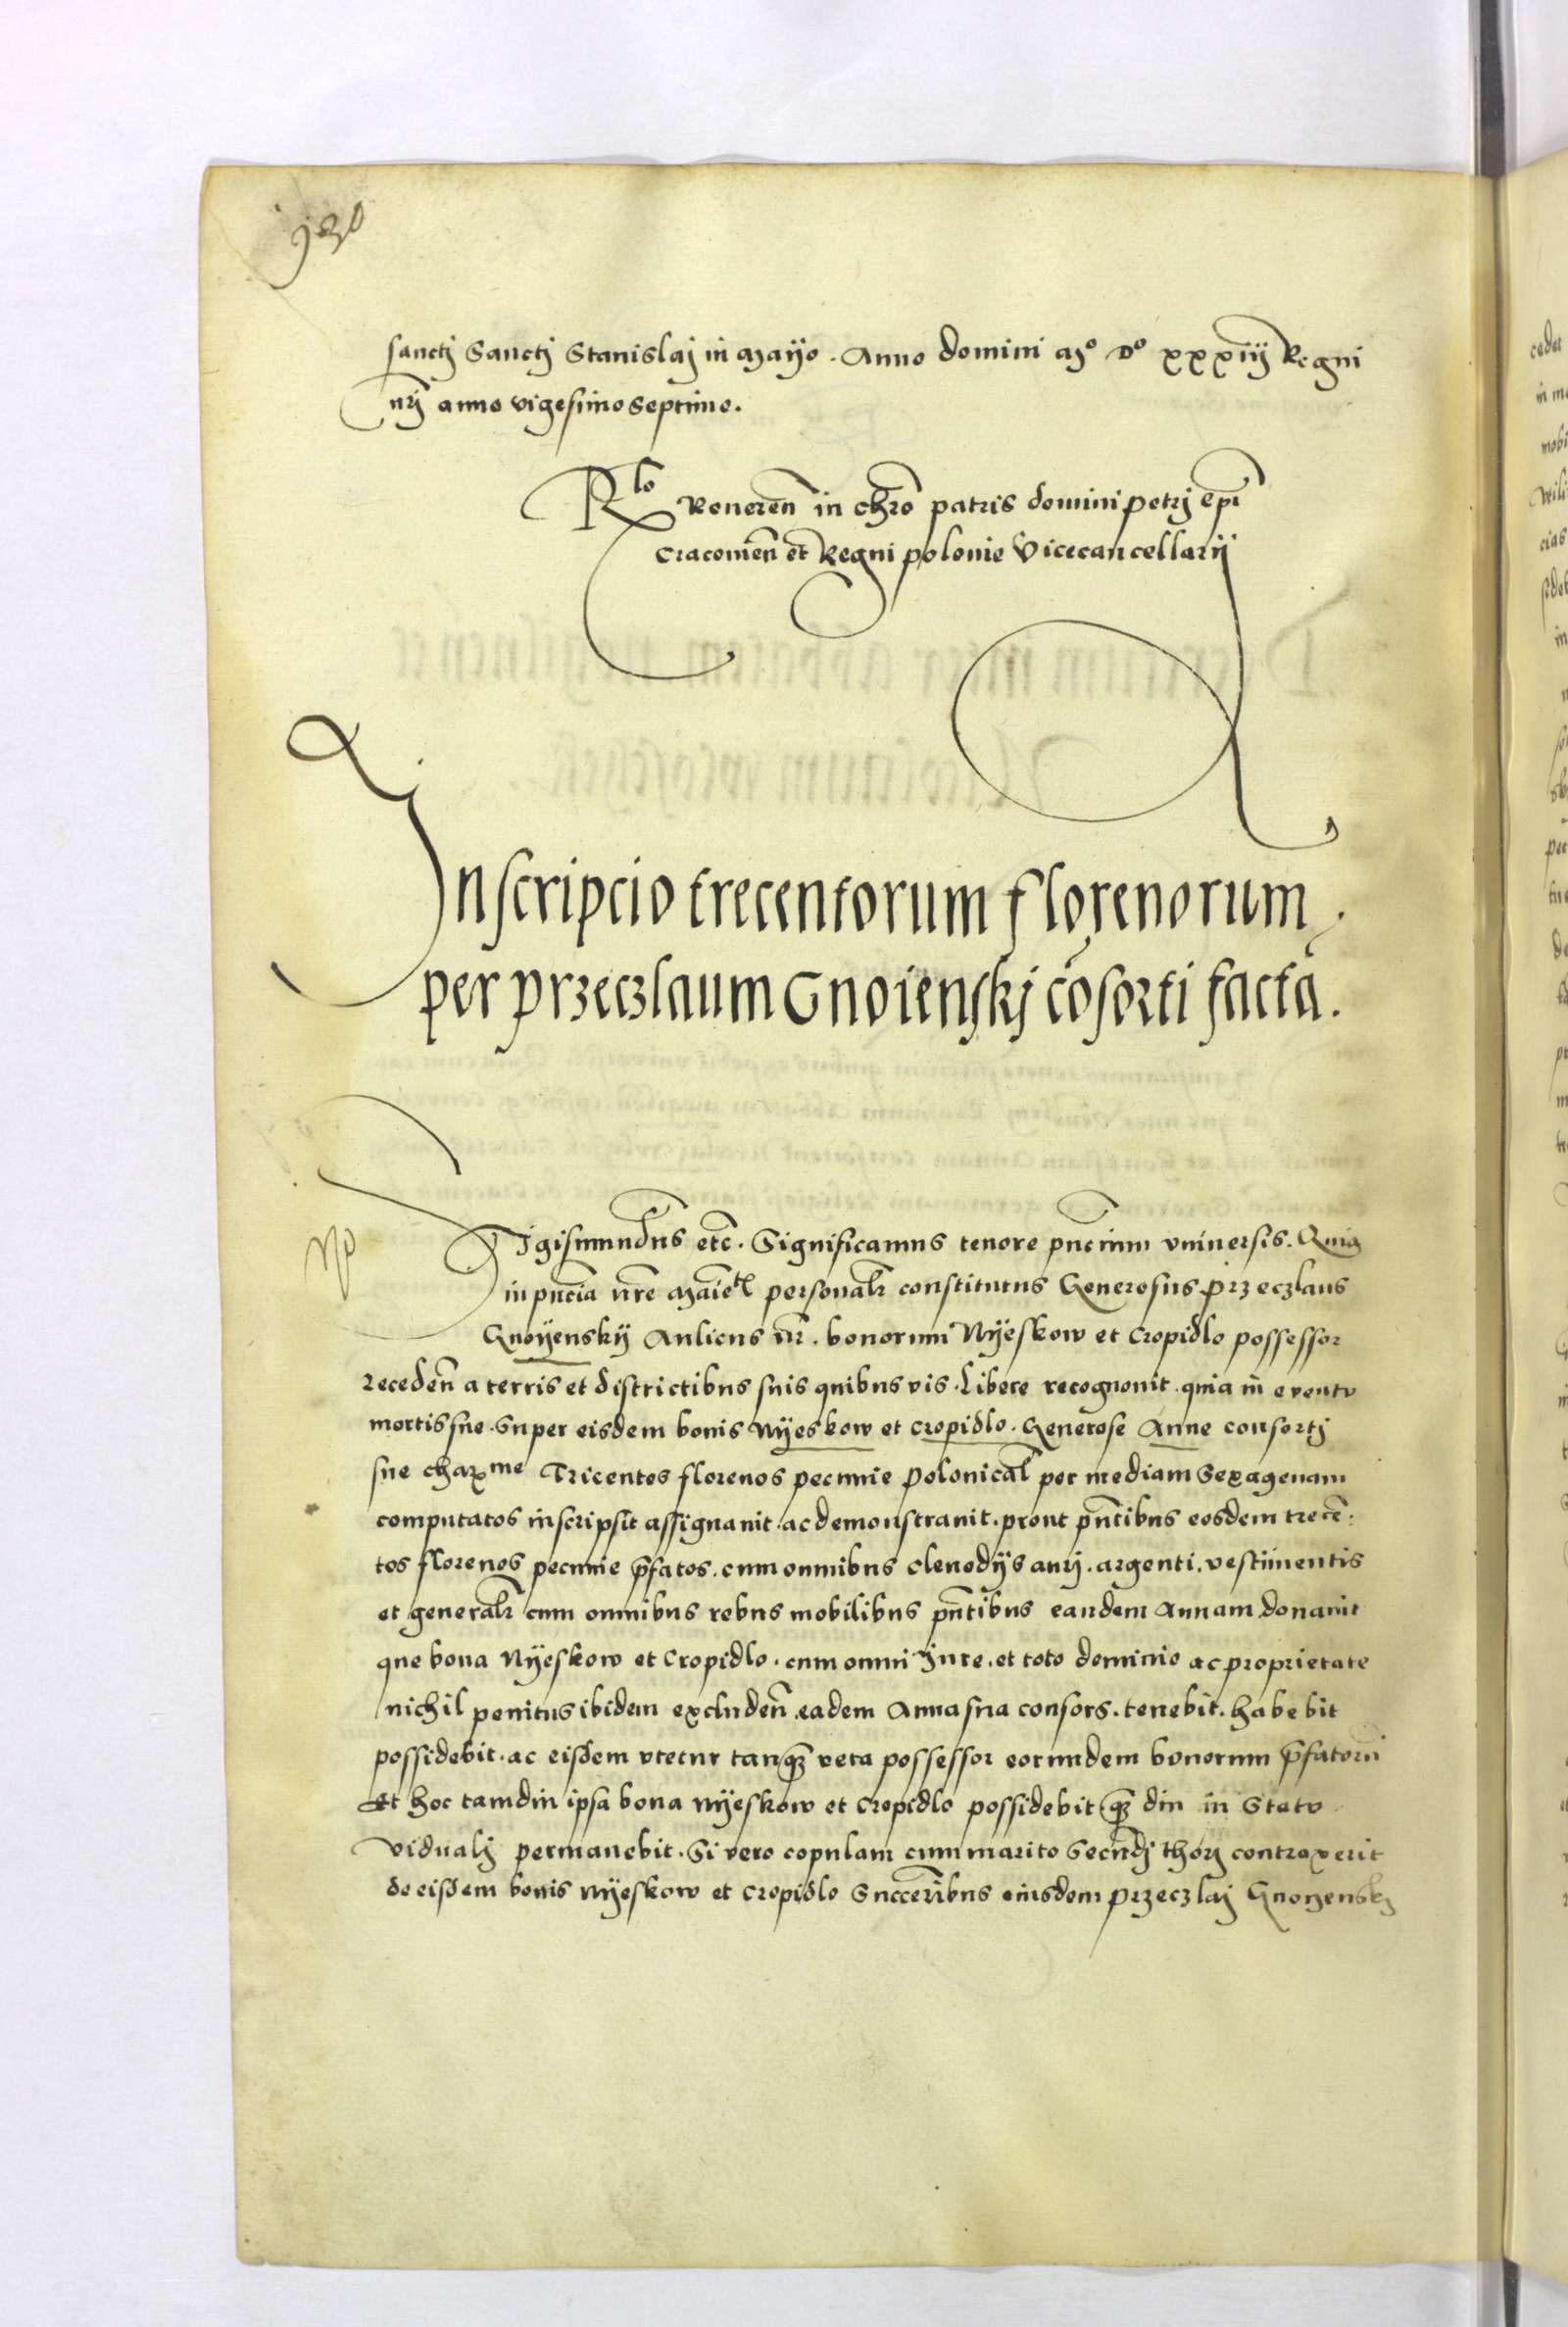 930
sanctj Sanctj Stanislaj in Mayo. Anno domini Mo Do xxxiij Regni
nrj anno vigesimo septimo.
Rlo Reueren in chro patris domini petrj epi
Cracouien et Regni polonie Vicecancellarij
Inscripcio trecentorum florenorum
per przeczlaum Gnoienskj cosorti facta.
Sigismundus etc. Significamus tenore pncium vniuersis. Quia
in pncia nre Maietis personalr constitutus Generosus przeczlaus
Gnoyenskij Aulicus nr. bonorum Nyeskow et Cropidlo possessor
receden a terris et districtibus suis quibusvis. Libere recognouit. quia in euentu
mortis sue. Super eisdem bonis Nyeskow et Cropidlo. Generose Anne consortj
sue charme Tricentos florenos pecunie Polonical per mediam Sexagenam
computatos inscripsit assignauit. ac demonstrauit. prout pntibus eosdem trecen
tos florenos pecunie pfatos. cum omnibus clenodijs aurj. argenti. vestimentis
et generalr cum omnibus rebus mobilibus pntibus eandem Annam donauit
que bona Nyeskow et Cropidlo. cum omni Jure. et toto dominio ac proprietate
nichil penitus ibidem excluden. eadem Anna sua consors. tenebit. habebit
possidebit. ac eisdem vtetur tanq vera possessor eorundem bonorum pfatoru
Et hoc tamdiu ipsa bona Nyeskow et Cropidlo possidebit q diu in Statu
vidualj permanebit. Si vero copulam cum marito Secundj thorj contraxerit
de eisdem bonis Nyeskow et Cropidlo Succeribus eiusdem przeczlaj Gnoyenskj